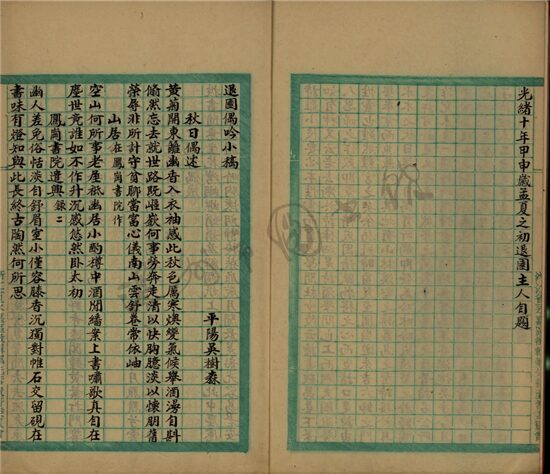 光緒十年甲申歲孟夏之初退圃主人自題
退圃偶吟小稿
平陽吳樹森
秋日偶述
黃菊開東籬幽香入衣袖感此秋色厲寒燠變氣候舉酒漫自斟
翛然忘去就世路既嶇嶔何事勞奔走清以快胸臆淡以懷朋舊
榮辱非所計守貧聊當富心儀南山雲舒卷常依岫
山居在鳳崗書院作
空山何所事老屋祗幽居小酌樽中酒閒繙案上書嘯歌真自在
塵世竟誰如不作升沉感悠然卧太初
鳳崗書院遣興錄二
幽人差免俗恬淡自舒眉室小僅容膝香沉獨對帷石交留硯在
書味有燈知與此長終古陶然何所思